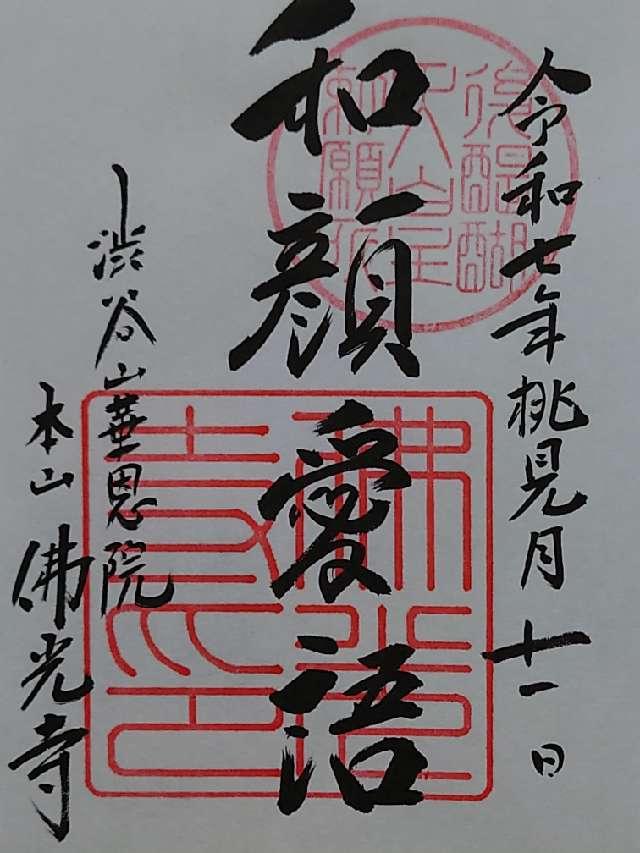 令和七年桃見月十一日
和顔愛語
渋谷山華恩院
本山佛光寺
後醍醐
天皇
勅願所
佛光
寺印